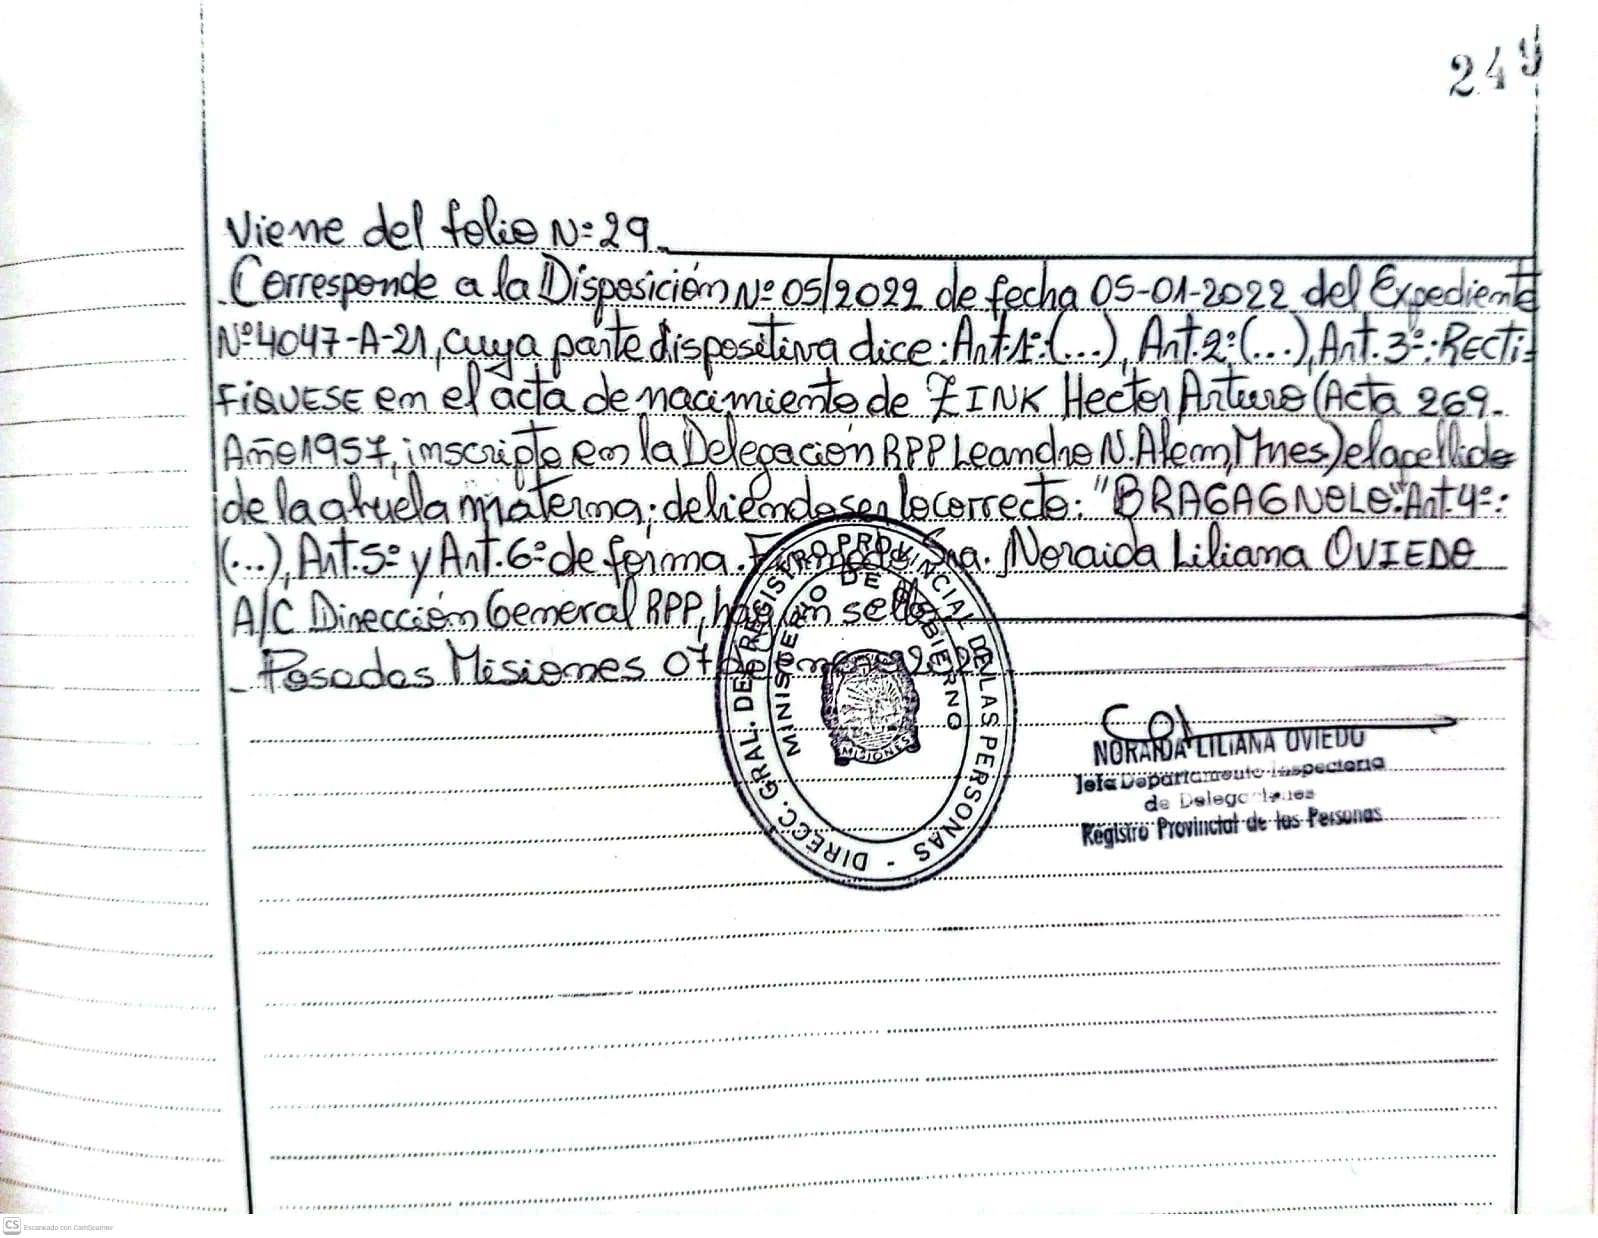 249
Viene del folio Nº 29.
Corresponde a la Disposición Nº 05/2022 de fecha 05-01-2022 del Expediente
Nº 4047-A-21, cuya parte dispositiva dice: Art. 1º: (...), Art. 2º: (...), Art. 3º: RECTI-
FIQUESE en el acta de nacimiento de ZINK Hector Arturo (Acta 269.
Año 1957, inscripto en la Delegación RPP Leandro N. Alem, Mnes.) el apellido
de la abuela materna; debiendo ser lo correcto: "BRAGAGNOLO". Art. 4º:
(...), Art. 5º y Art. 6º de forma. Firmado Sra. Noraida Liliana OVIEDO
A/C Dirección General RPP, hay un sello
Posadas Misiones 07 de
DIRECC. GRAL. DE REGISTRO PROVINCIAL DE LAS PERSONAS -
MINISTERIO DE GOBIERNO
MISIONES
NORAIDA LILIANA OVIEDO
Jefa Departamento Inspectoria
de Delegaciones
Registro Provincial de las Personas
CS Escaneado con CamScanner